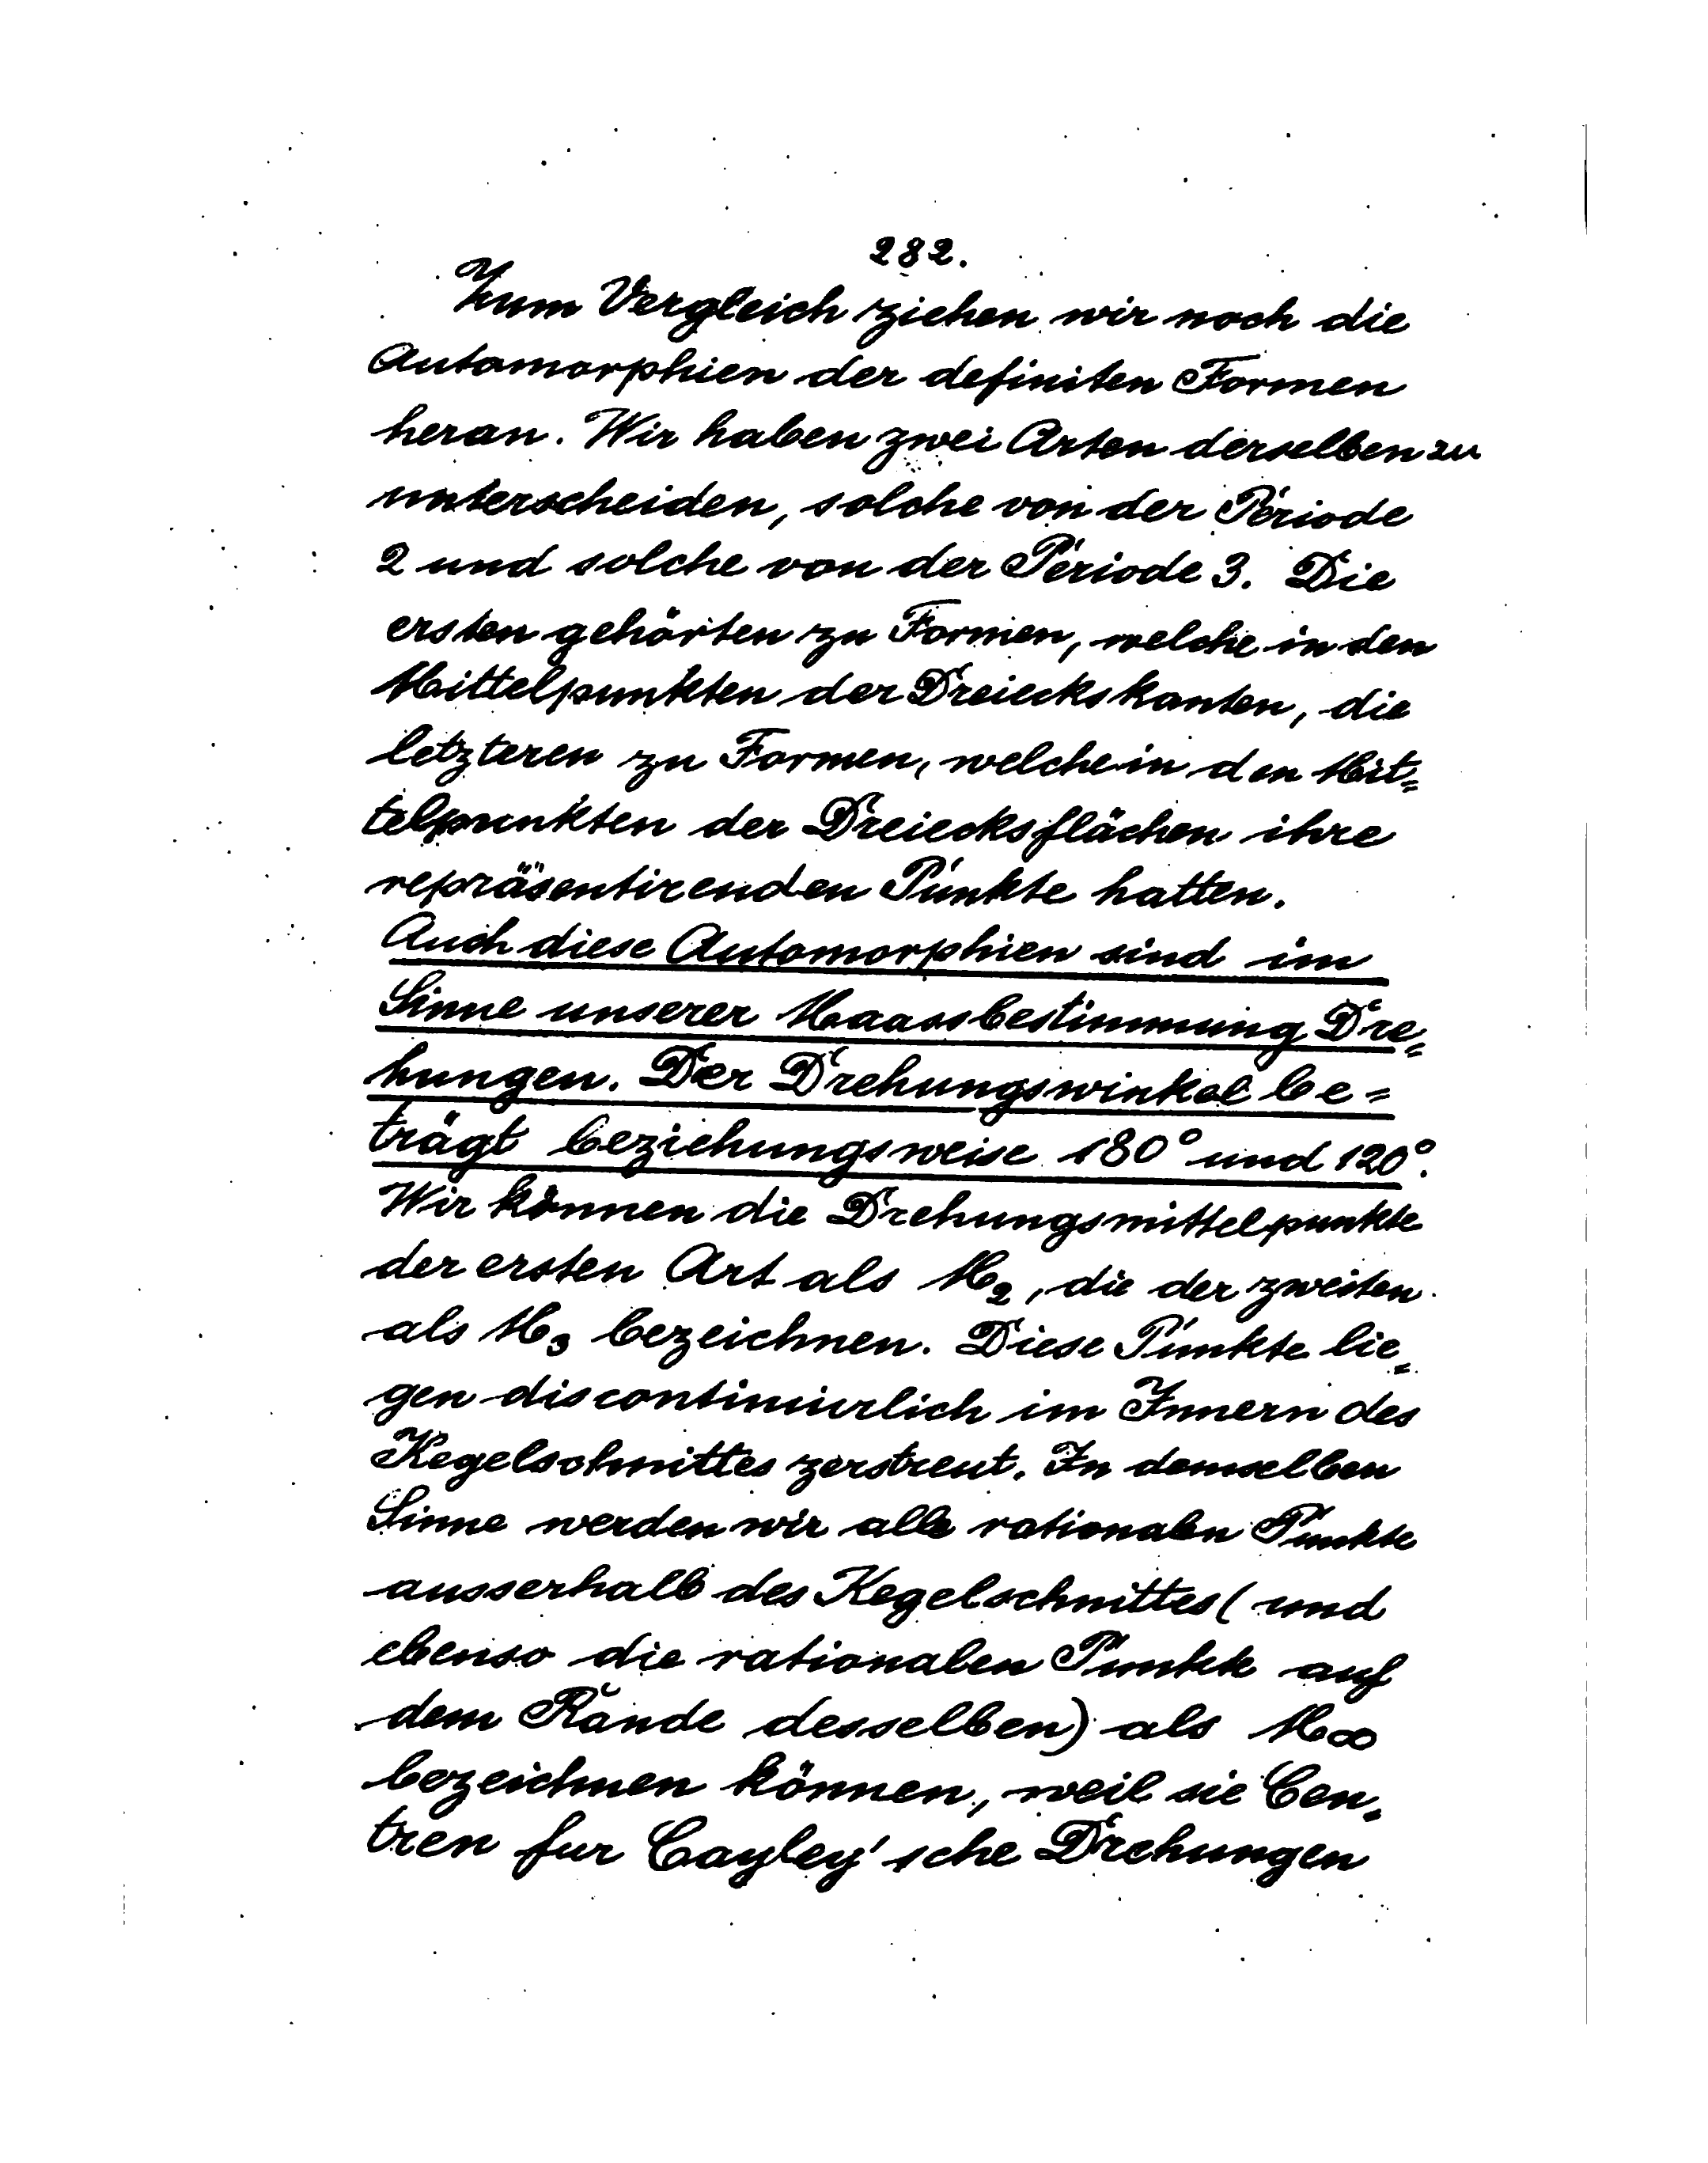 282.
Zum Vergleich ziehen wir noch die
Automorphien der definiten Formen
heran. Wir haben zwei Arten derselben zu
unterscheiden, solche von der Periode
2 und solche von der Periode 3. Die
ersten gehörten zu Formen, welche in den
Mittelpunkten der Dreieckskanten, die
letzteren zu Formen, welche in den Mit=
telpunkten der Dreiecksflächen ihre
repräsentirenden Punkte hatten.
Auch diese Automorphien sind im
Sinne unserer Maassbestimmung Dre=
hungen. Der Drehungswinkel be=
trägt beziehungsweise 180° und 120°.
Wir können die Drehungsmittelpunkte
der ersten Art als M₂, die der zweiten
als M₃ bezeichnen. Diese Punkte lie=
gen discontinuirlich im Innern des
Kegelschnittes zerstreut. In demselben
Sinne werden wir alle rationalen Punkte
ausserhalb des Kegelschnittes (und
ebenso die rationalen Punkte auf
dem Rande desselben) als M∞
bezeichnen können, weil sie Cen=
tren fur Cayley'sche Drehungen